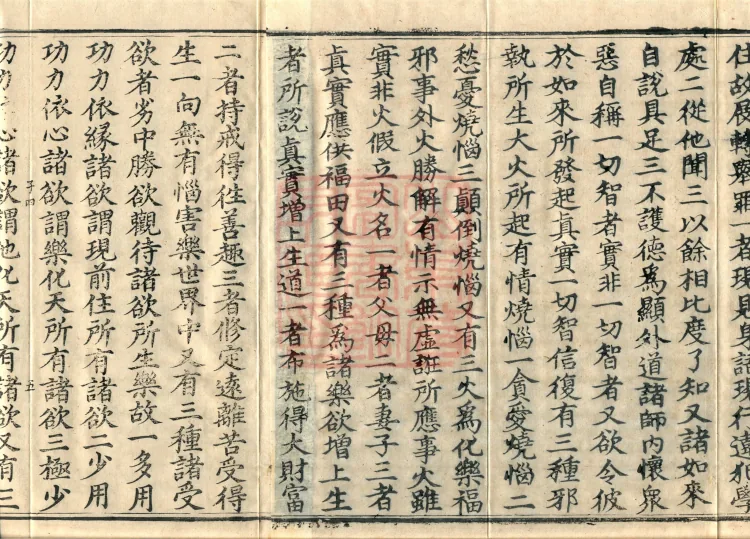 處二從他聞三以餘相比度了知又諸如來
自說具足三不護德爲顯外道諸師內懷衆
惡自稱一切智者實非一切智者又欲令彼
於如來所發起眞實一切智信復有三種邪
執所生大火所起有情燒惱一貪愛燒惱二
愁憂燒惱三顚倒燒惱又有三火爲化樂福
邪事外火勝解有情示無虛誑所應事火雖
實非火假立火名一者父母二者妻子三者
眞實應供福田又有三種爲諸樂欲增上生
者所說眞實增上生道一者布施得大財富
二者持戒得往善趣三者修定遠離苦受得
生一向無有惱害樂世界中又有三種諸受
欲者劣中勝欲觀待諸欲所生樂故一多用
功力依緣諸欲謂現前住所有諸欲二少用
功力依心諸欲謂樂化天所有諸欲三極少
心諸欲謂他化天所有諸欲又有三
五